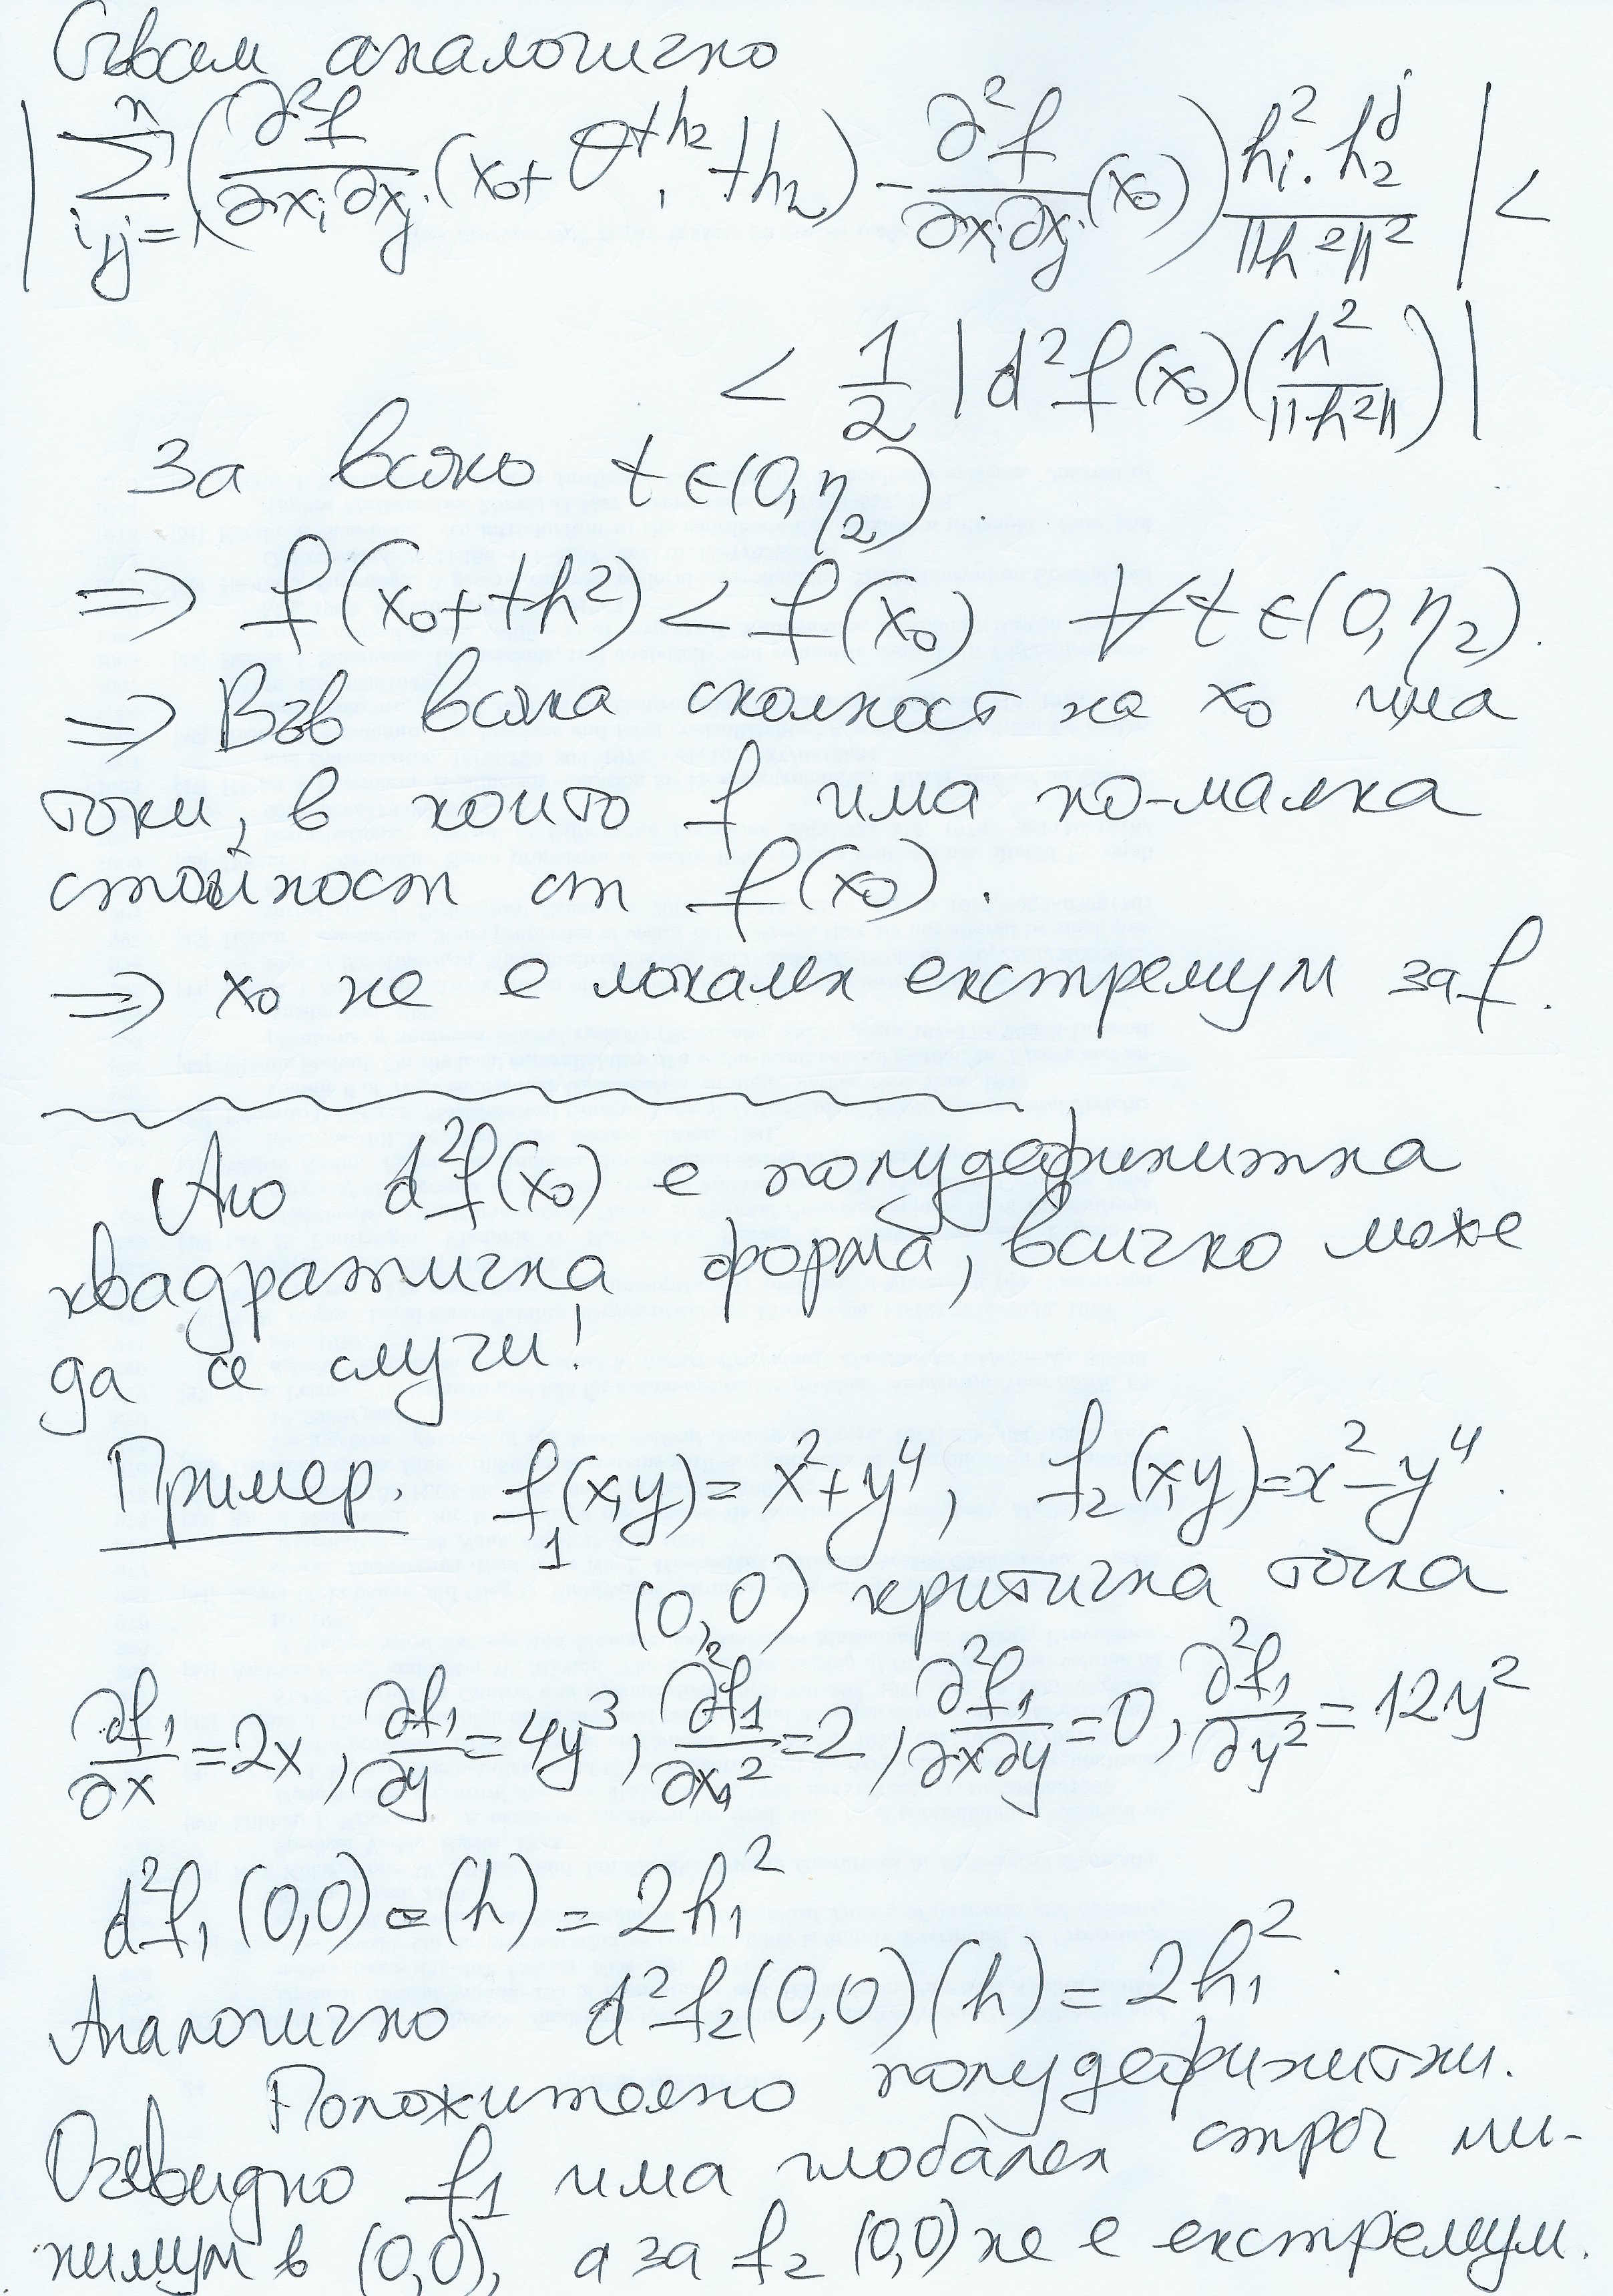 Съвсем аналогично
| \sum_{i,j=1}^{n} ( ∂²f/∂x_i∂x_j (x_0 + θ^{th_2} . th_2) - ∂²f/∂x_i∂x_j (x_0) ) h_i^2 . h_2^j / ||h^2||^2 | <
< 1/2 | d²f(x_0)(h^2/||h^2||) |
За всяко t ∈ (0, η_2)
⇒ f(x_0 + th^2) < f(x_0) ∀ t ∈ (0, η_2).
⇒ Във всяка околност на x_0 има
точки, в които f има по-малка
стойност от f(x_0).
⇒ x_0 не е локален екстремум за f.
Ако d²f(x_0) е полудефинитна
квадратична форма, всичко може
да се случи!
Пример. f_1(x,y) = x² + y⁴, f_2(x,y) = x² - y⁴.
(0,0) критична точка
∂f_1/∂x = 2x, ∂f_1/∂y = 4y³, ∂²f_1/∂x_1² = 2, ∂²f_1/∂x∂y = 0, ∂²f_1/∂y² = 12y²
d²f_1(0,0) = (h) = 2h_1²
Аналогично d²f_2(0,0)(h) = 2h_1².
Положително полудефинитни.
Очевидно f_1 има глобален строг ми-
нимум в (0,0), а за f_2 (0,0) не е екстремум.